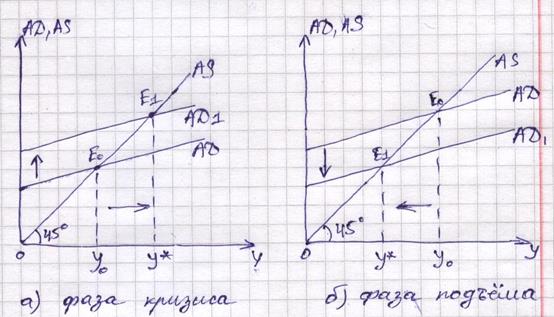 AD, AS
AS
E1
AD1
E₀
AD
45°
0
y₀
y*
y
а) фаза кризиса
AD, AS
AS
E₀
AD
AD₁
E1
45°
0
y*
y₀
y
б) фаза подъёма